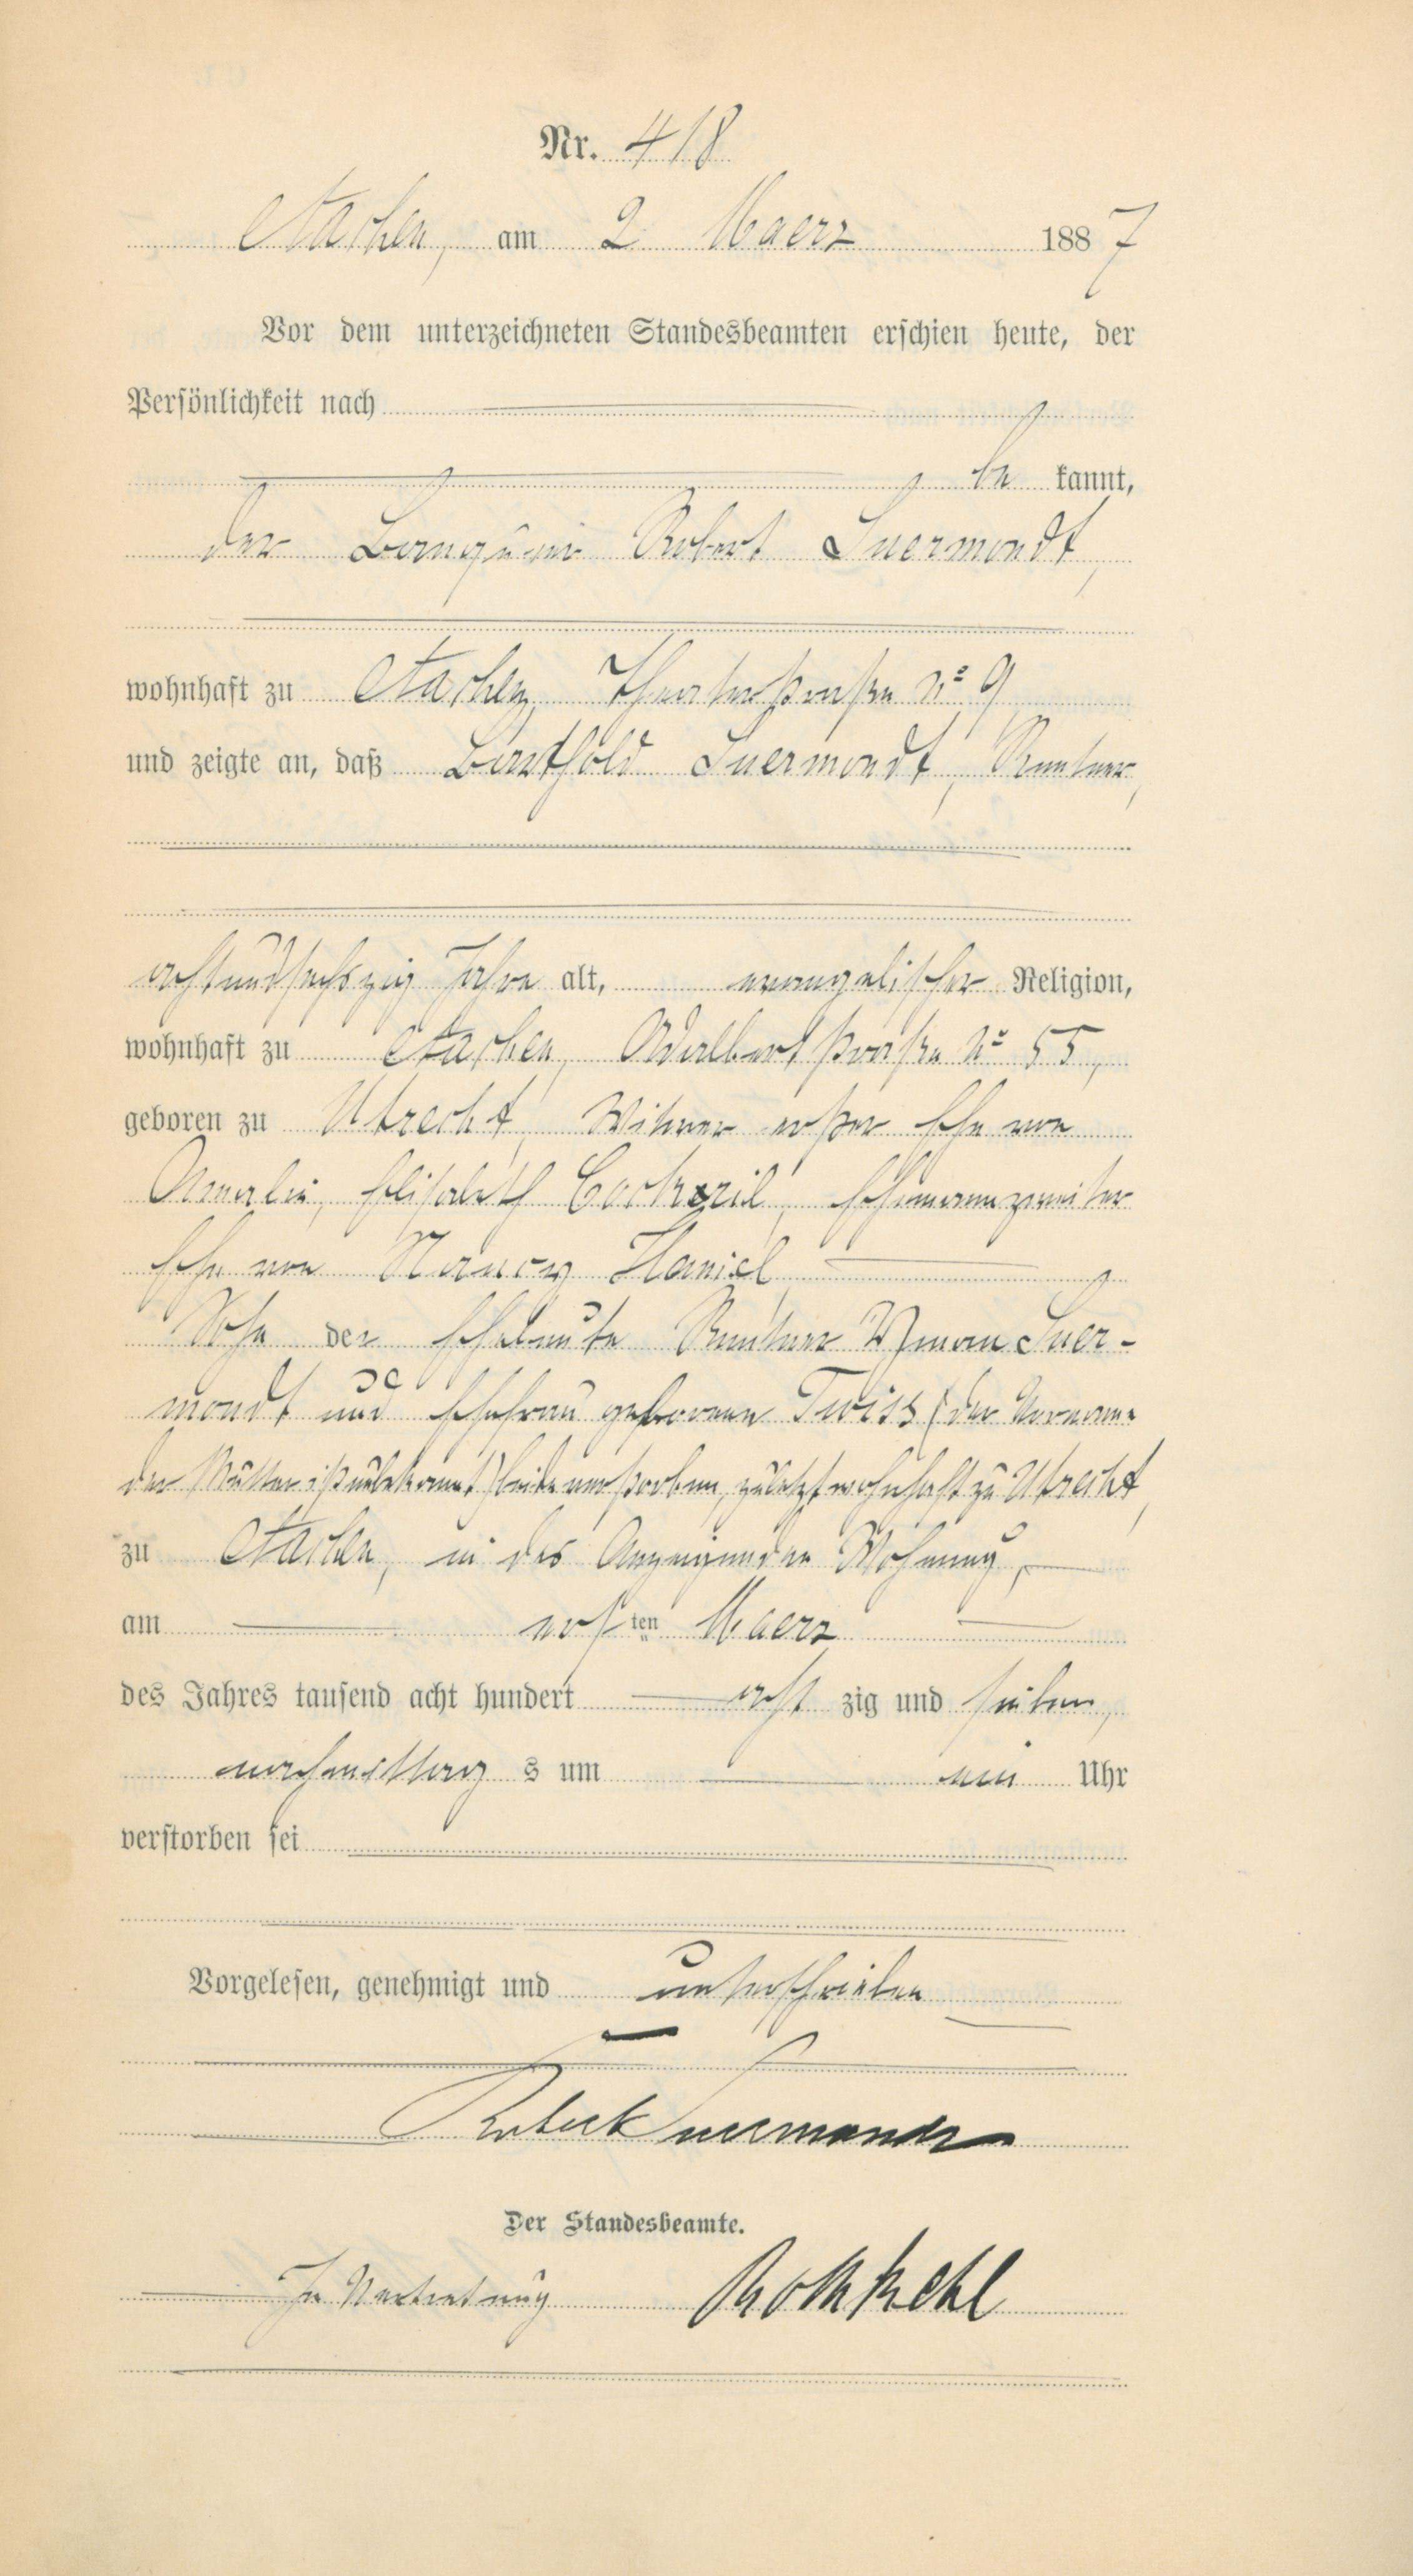 Nr. 418
Aachen, am 2 Maerz 1887
Vor dem unterzeichneten Standesbeamten erschien heute, der
Persönlichkeit nach
be kannt,
der Banquier Robert Suermondt,
wohnhaft zu Aachen, Theaterstraße No 9
und zeigte an, daß Barthold Suermondt, Rentner,
achtundsechszig Jahre alt, evangelischer Religion,
wohnhaft zu Aachen, Adalbertstraße No 55,
geboren zu Utrecht, Witwer erster Ehe von
Amalie, Elisabeth Cockeril, Ehemann zweiter
Ehe von Nancy Haniel
Sohn der Eheleute Rentner Yman Suer-
mondt und Ehefrau geborene Twiss (der Vorname
der Mutter ist unbekannt) beide verstorben, zuletzt wohnhaft zu Utrecht,
zu Aachen, in des Anzeigenden Wohnung,
am ersten Maerz
des Jahres tausend acht hundert acht zig und sieben,
nachmittag s um ein Uhr
verstorben sei
Vorgelesen, genehmigt und unterschrieben
Robert Suermondt
Der Standesbeamte.
In Vertretung Rothkehl